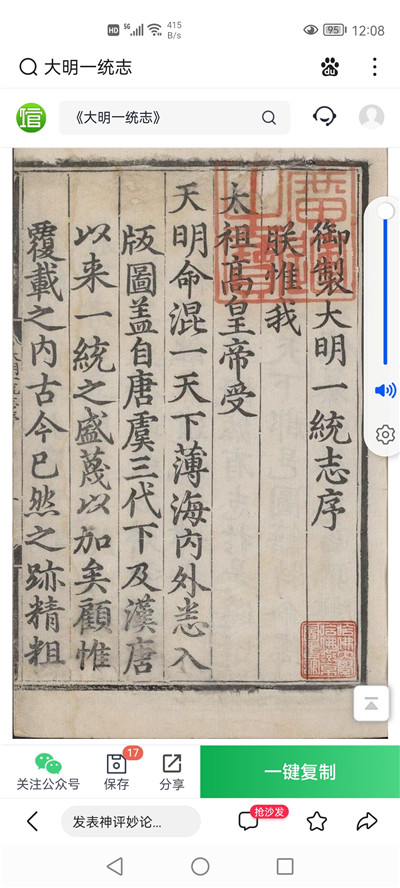 HD 5G 415 B/s 95 12:08
大明一统志
《大明一统志》
御製大明一統志序
朕惟我
太祖高皇帝受
天明命混一天下薄海内外悉入
版圖盖自唐虞三代下及漢唐
以来一統之盛蔑以加矣顧惟
覆載之内古今已然之跡精粗
关注公众号
17
保存
分享
一键复制
发表神评妙论...
抢沙发